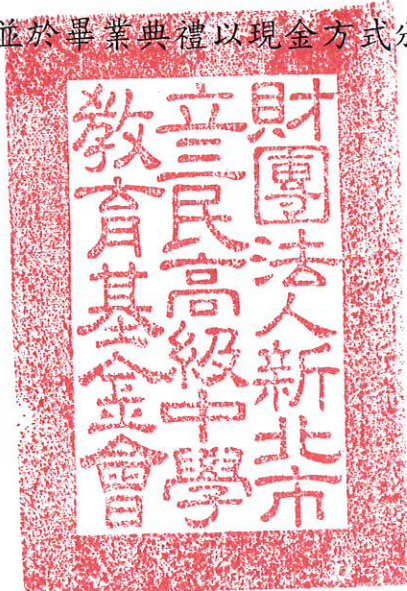 並於畢業典禮以現金方式
財團法人新北市
立三民高級中學
教育基金會